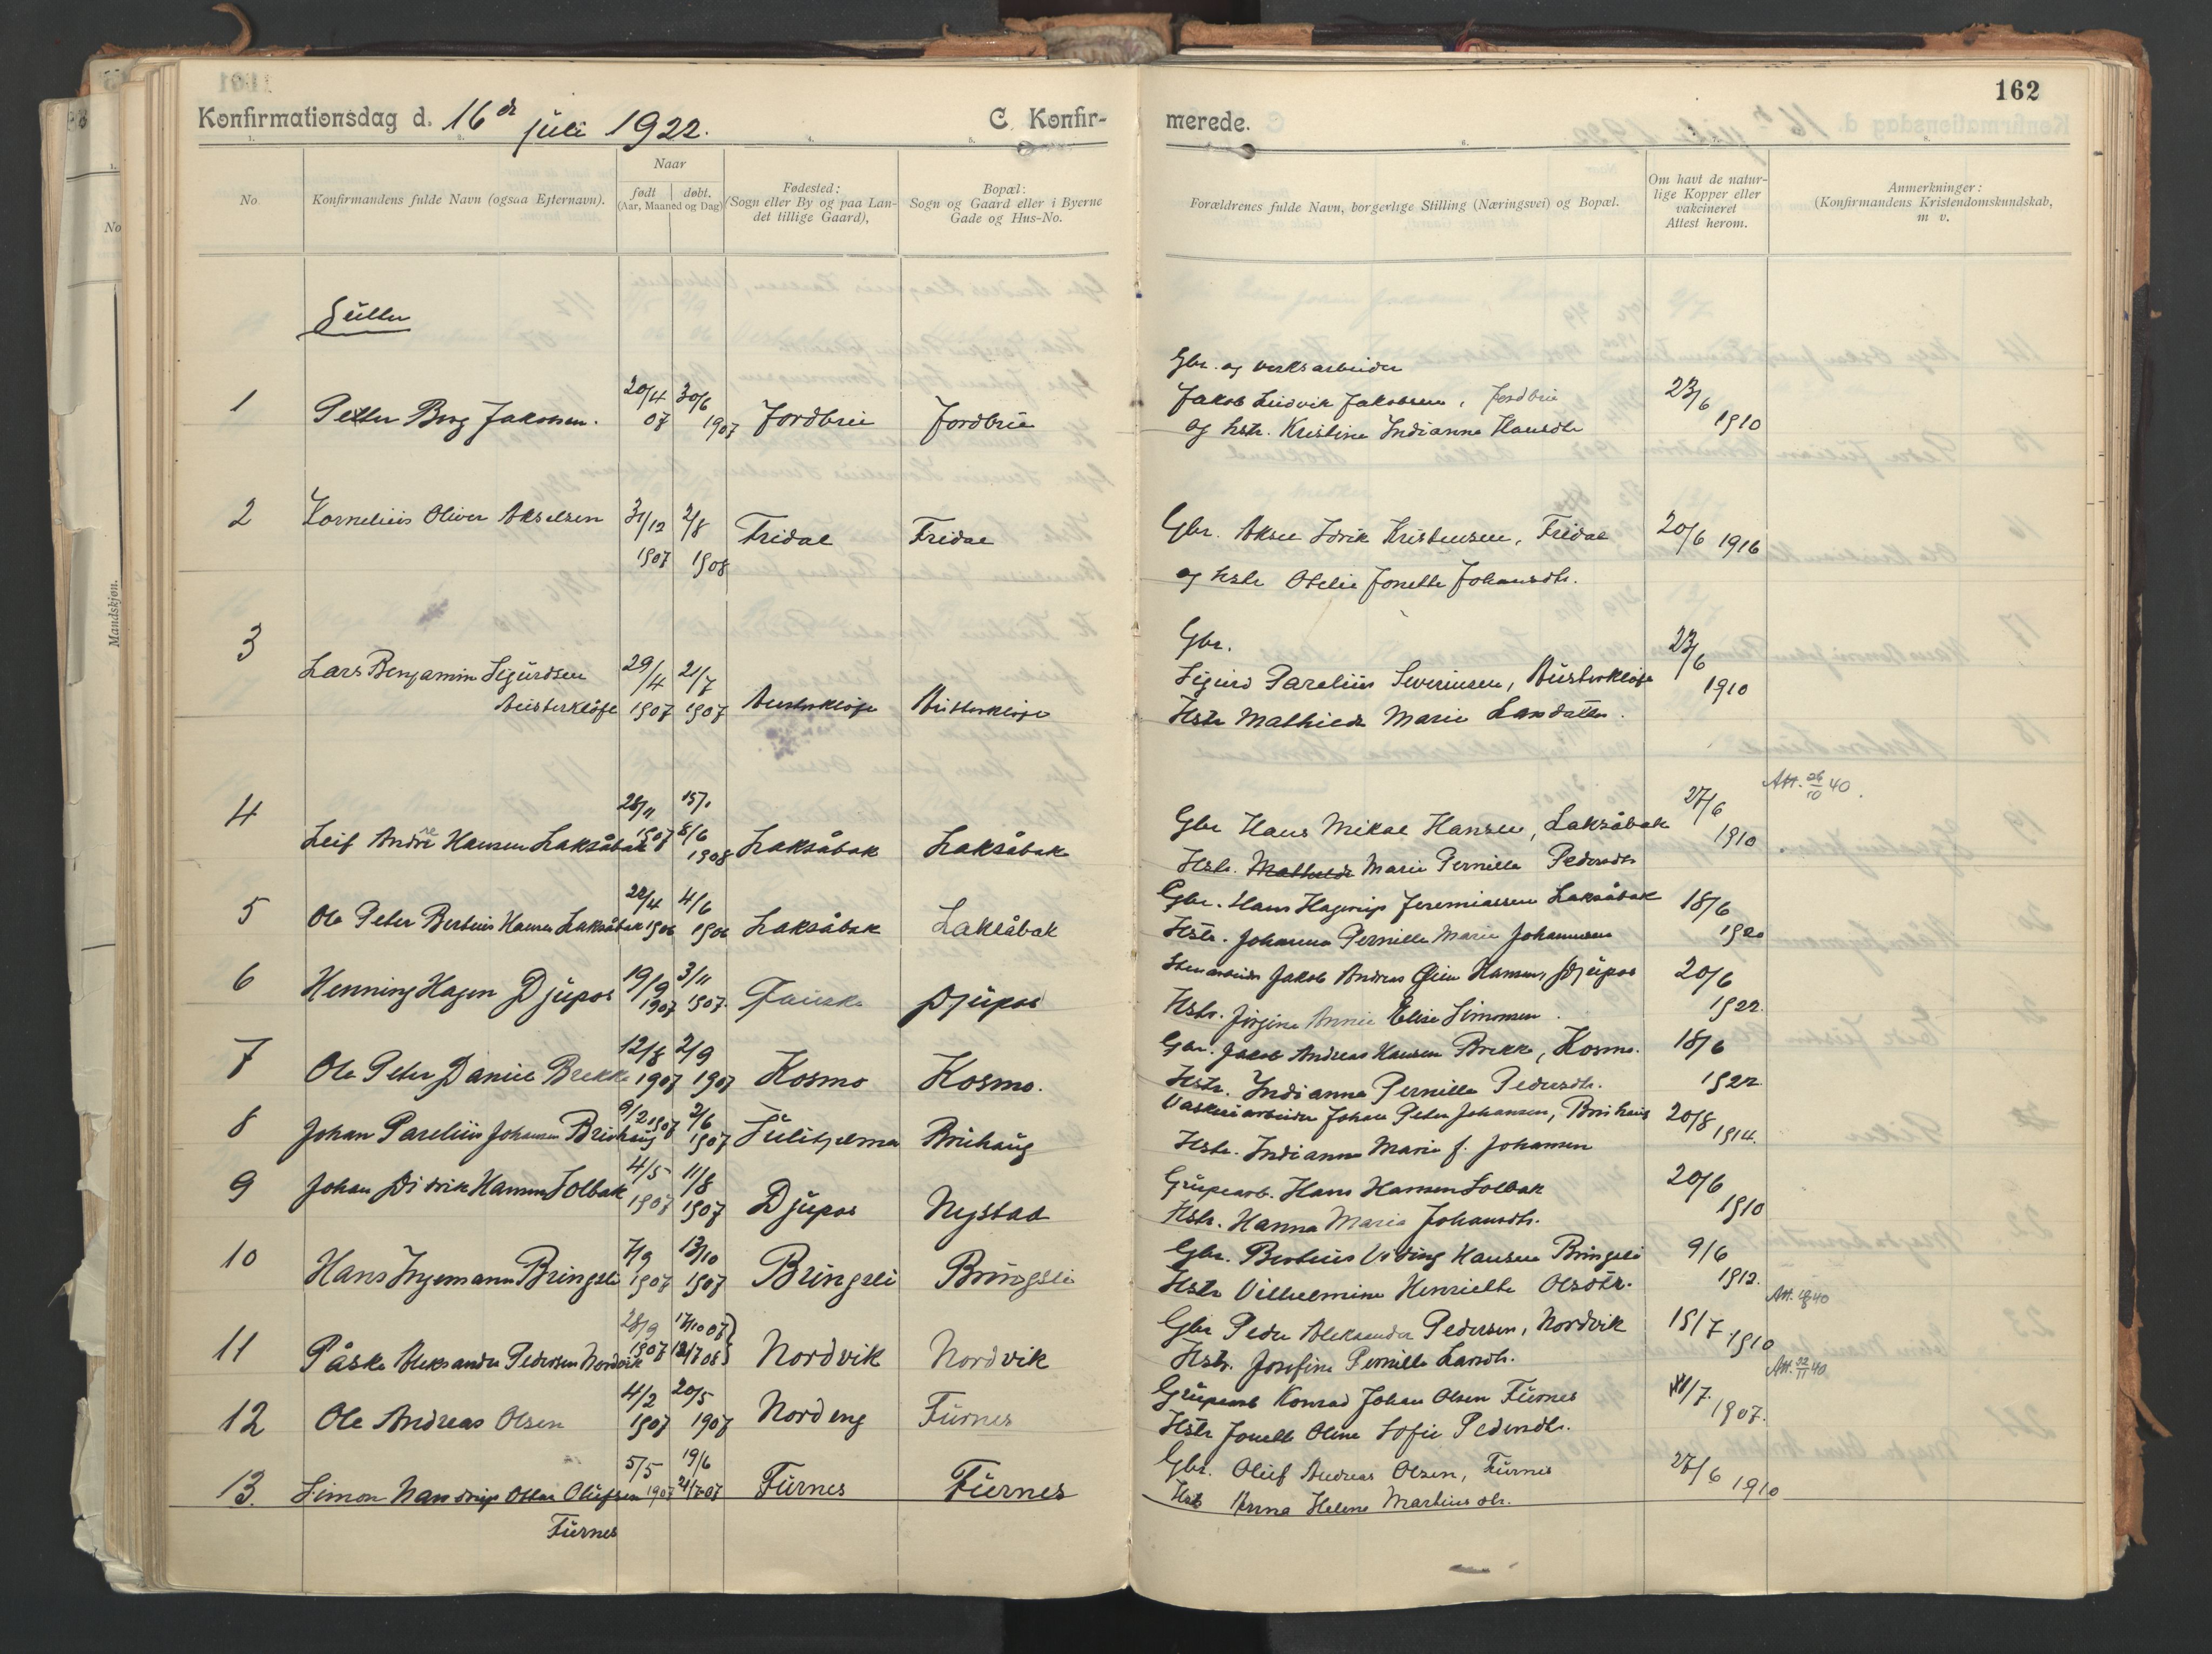 162
Konfirmationsdag d. 16de juli 1922.
C. Konfir-
merede.
No.
Konfirmandens fulde Navn (ogsaa Efternavn).
Naar
født
døbt.
(Aar, Maaned og Dag)
Fødested:
(Sogn eller By og paa Lan-
det tillige Gaard),
Bopæl:
Sogn og Gaard eller i Byerne
Gade og Hus-No.
Forældrenes fulde Navn, borgerlige Stilling (Næringsvei) og Bopæl.
Om havt de natur-
lige Kopper eller
vakcineret
Attest herom.
Anmerkninger:
(Konfirmandens Kristendomskundskab,
m v.
Gutter
1 Petter Berg Jakobsen. 20/4 07 30/6 1907 Jordbru Jordbru
Gbr. og verksarbeider
Jakob Ludvik Jakobsen, Jordbru
og hstr. Kristine Indianna Hansdtr
23/6 1910
2 Kornelius Oliver Akselsen 31/12 1907 2/8 1908 Fridal Fridal
Gbr. Aksel Idrik Kristensen, Fridal
og hstr Otelie Jonette Johansdtr.
20/6 1916
3 Lars Benjamin Sigurdsen
Austerkløft 29/4 1907 21/7 1907 Austerkløft Austerkløft
Gbr.
Sigurd Parelius Severinsen, Austerkløft
Hstr Mathilde Marie Larsdatter.
23/6 1910
4 Leif Andre Hansen Laksåbak 28/11 1907 15/1 8/6 1908 Laksåbak Laksåbak
Gbr Hans Mikal Hansen, Laksåbak
Hstr. Mathilde Marie Pernille Pedersdtr
27/6 1910
Att. 26/10 40.
5 Ole Peter Berteus Hansen Laksåbak 22/4 1906 4/6 1906 Laksåbak Laksåbak
Gbr. Hans Hagerup Jeremiassen Laksåbak
Hstr. Johanna Pernille Marie Johannesen
18/6 1920
6 Henning Hagen Djupos 19/9 1907 3/11 1907 Fauske Djupos
Jakob Andreas Hansen, Djupos
Hstr. Jørgine Annie Elise Simonsen.
20/6 1922.
7 Ole Peter Daniel Brekke 12/8 1907 2/9 1907 Kosmo Kosmo.
Gbr. Jakob Andreas Hansen Brekke, Kosmo.
Hstr. Indianna Pernille Pedersdtr.
18/6 1922.
8 Johan Parelius Johansen Bruhaug 9/2 1907 2/6 1907 Sulitjelma Bruhaug
Vaskeriarbeider Johan Peter Johansen, Bruhaug
Hstr. Indianna Marie f. Johansen
20/8 1914.
9 Johan Didrik Hansen Solbak 4/5 1907 11/8 1907 Djupos Nystad
Grubearb. Hans Hansen Solbak
Hstr. Hanna Maria Johansdtr.
20/6 1910
10 Hans Ingemann Bringsli 7/9 1907 13/10 1907 Bringsli Bringsli
Gbr. Berteus Hansen Bringsli
Hstr Vilhelmine Henriette Olsdtr.
9/6 1912.
11 Påske Aleksander Pedersen Nordvik 28/9 1907 17/10 07 12/7 08 Nordvik Nordvik
Gbr Peder Aleksander Pedersen, Nordvik
Hstr. Josefine Pernille Larsdtr.
15/7 1910
Att. 40
12 Ole Andreas Olsen 4/2 1907 20/5 1907 Nordeng Furnes
Grubearb Konrad Johan Olsen Furnes
Hstr Jonette Oline Sofie Pedersdtr.
11/7. 1907.
Att. 22/11 40
13. Simon Nandrup Ottar Olufsen
Furnes 5/5 1907 19/6 21/7 07 Furnes Furnes
Gbr. Oluf Andreas Olsen, Furnes
Hstr Anna Helene Martinusdtr.
27/6 1910